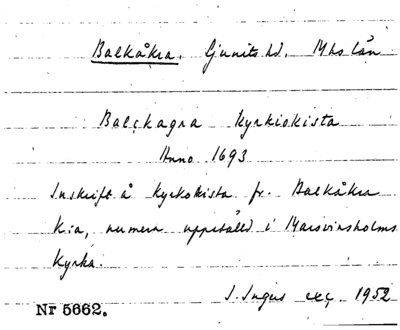 Balkåkra. Ljunits hd. Mhs län
Balckagra Kyrkiokista
Anno 1693
Inskrift å kyrkokista fr. Balkåkra
k:a, numera uppställd i Marsvinsholms
kyrka.
I. Ingers exc. 1952
Nr 5662.